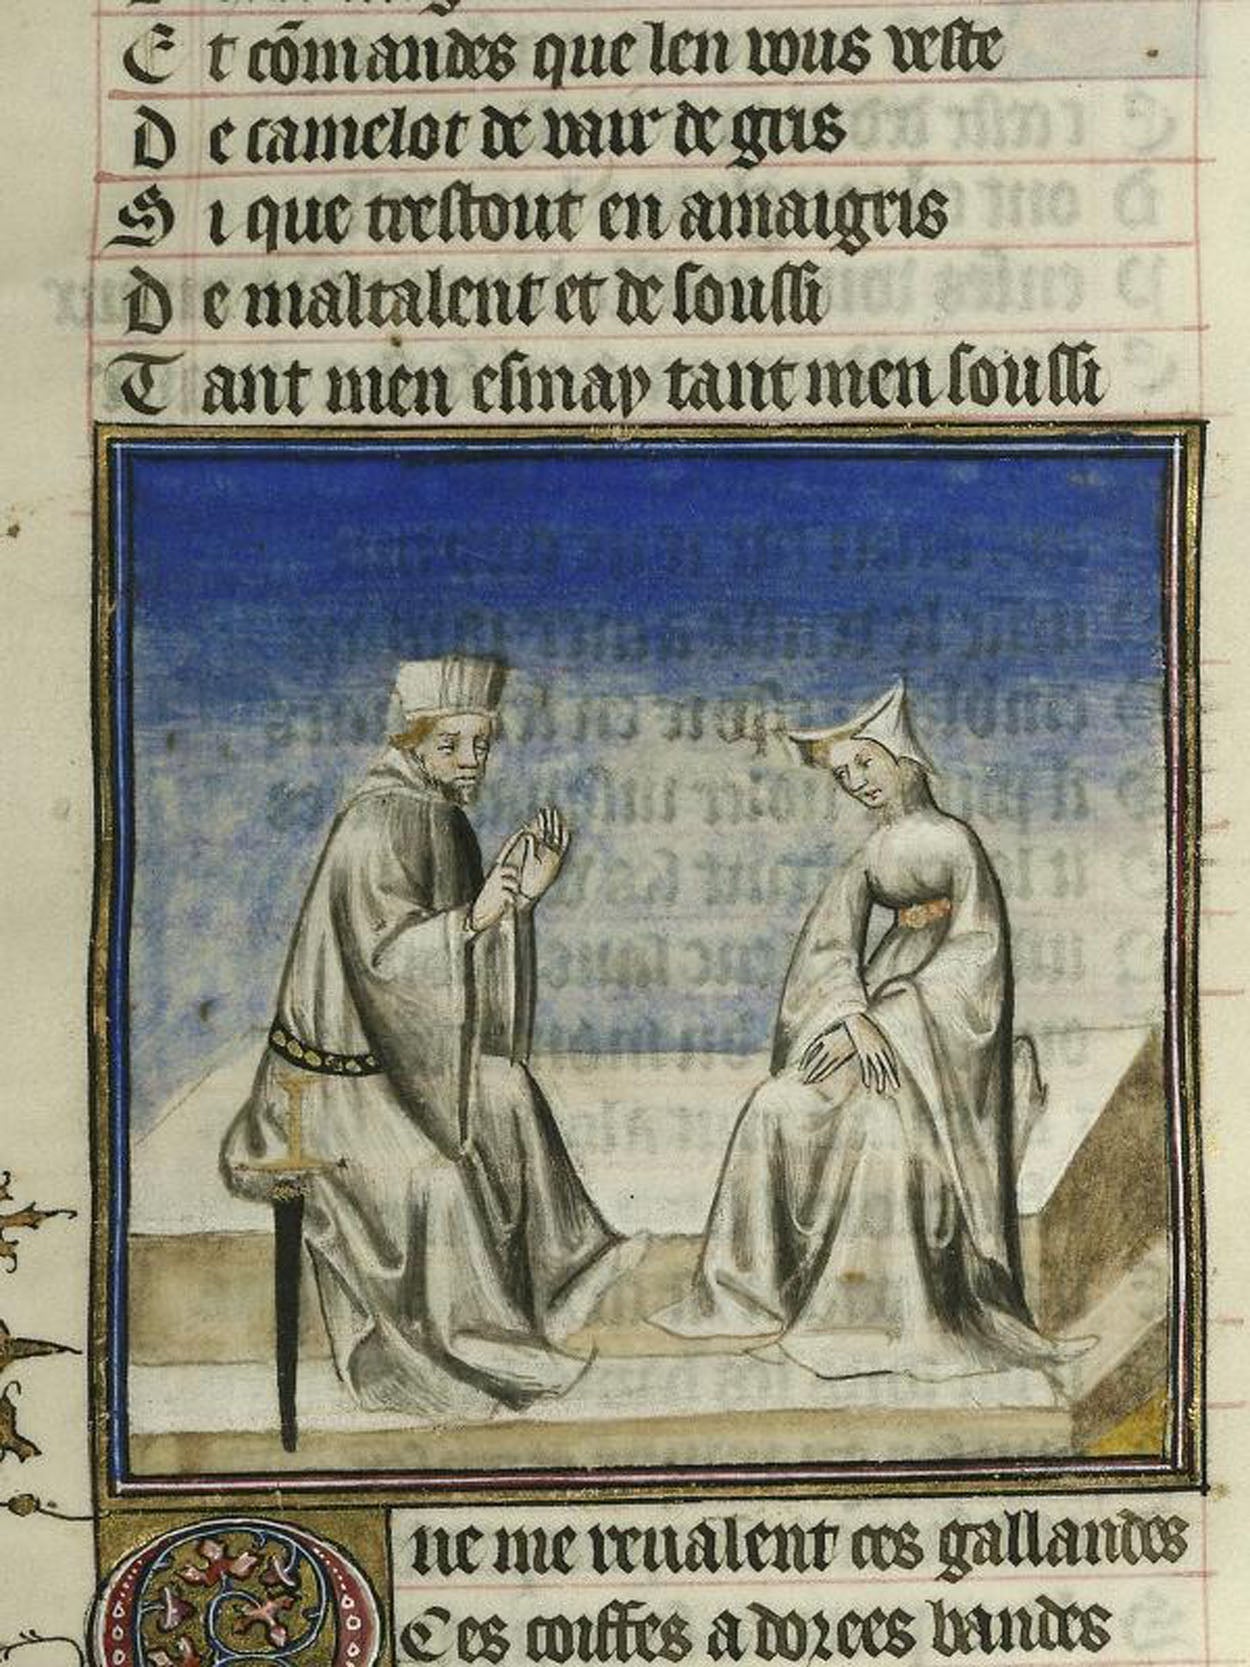 Et cõmandes que len vous veste
De camelot de vair de gris
Si que trestout en amaigris
De maltalent et de soussi
Tant men esmay tant men soussi
Que me revalent ces gallandes
Ces coiffes a dorees bandes